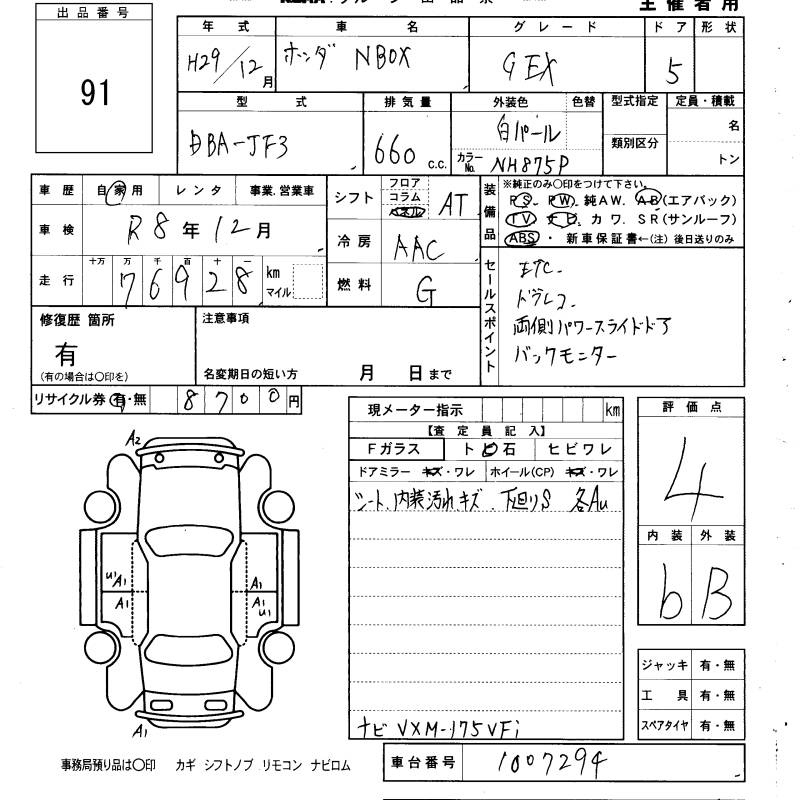 出品番号
91
主催者用
年式 車名 グレード ドア 形状
H29/12月 ホンダ NBOX G EX 5
型式 排気量 外装色 色替 型式指定 定員・積載
DBA-JF3 660 c.c. 白パール 類別区分 名
カラーNo. NH875P トン
車歴 自家用 レンタ 事業.営業車
車検 R8年12月
走行 十万 万 千 百 十 一
76928 km マイル
シフト フロア コラム パネル AT
冷房 AAC
燃料 G
装備品
※純正のみ○印をつけて下さい。
PS. PW. 純AW. AB(エアバック)
TV ナビ. カワ. SR(サンルーフ)
ABS・ 新車保証書←(注) 後日送りのみ
セールスポイント
ETC.
ドラレコ.
両側パワースライドドア
バックモニター
修復歴 箇所
有
(有の場合は○印を)
注意事項
名変期日の短い方 月 日まで
リサイクル券 有・無 8700円
現メーター指示 km
【査定員記入】
Fガラス トビ石 ヒビワレ
ドアミラー キズ・ワレ ホイール(CP) キズ・ワレ
シート.内装汚れキズ. 下廻りS 各AU
ナビ VXM-175VFi
評価点
4
内装 外装
b B
ジャッキ 有・無
工具 有・無
スペアタイヤ 有・無
車台番号 1007294
A2
U1 A1 A1
A1 A1 U1
A1
事務局預り品は○印 カギ シフトノブ リモコン ナビロム